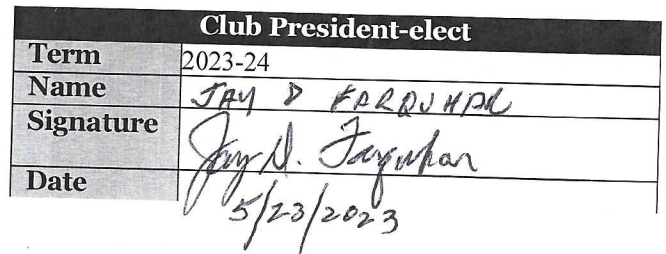 Club President-elect
Term 2023-24
Name JAY D FARQUHAR
Signature Jay D. Farquhar
Date 5/23/2023